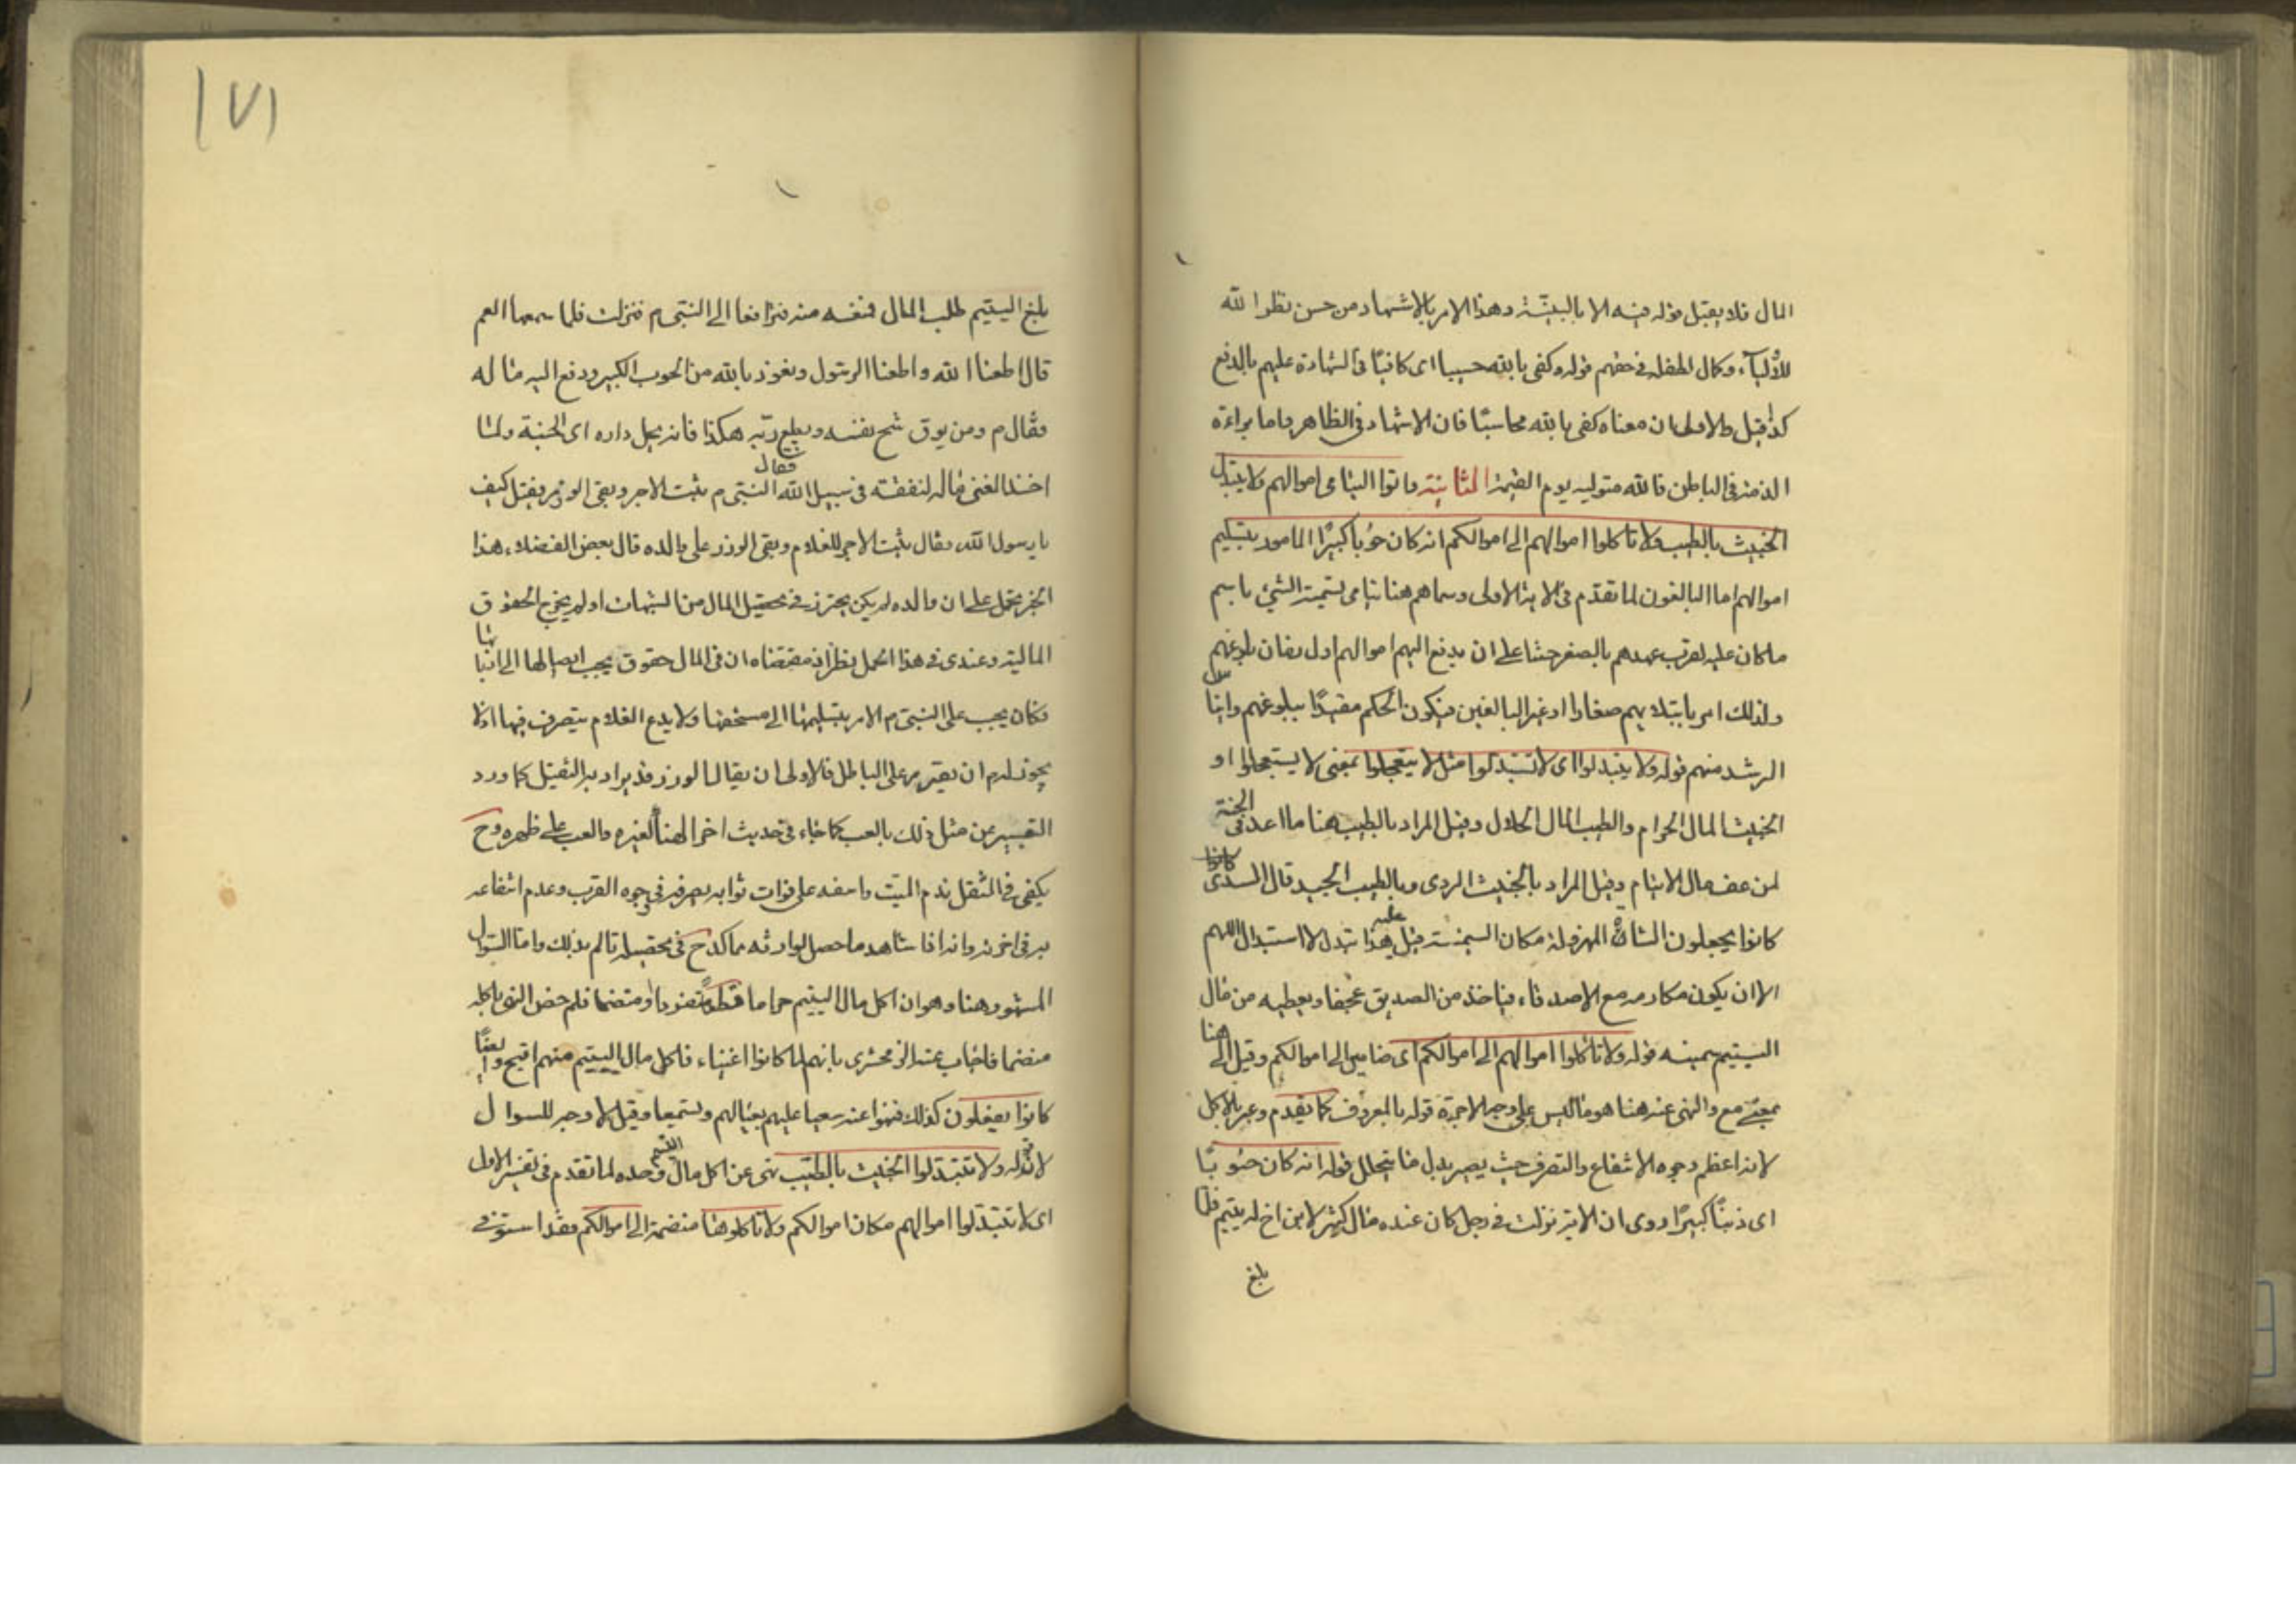 المال فلا يقبل قوله فيه الا بالبينة وهذا الامر بالاشهاد من حسن نظر الله
للأولياء وكمال لطفه في حقهم قوله وكفى بالله حسيبا اى كافيًا في الشهادة عليهم بالدفع
كذا قيل والاولى ان معناه كفى بالله محاسبًا فان الاشهاد في الظاهر واما براءة
الذمة في الباطن فالله متوليه يوم القيمة الثانية واتوا اليتامى اموالهم ولا تتبدلوا
الخبيث بالطيب ولا تاكلوا اموالهم الى اموالكم انه كان حُوبًا كبيرًا المامور بتسليم
اموالهم اما البالغون لما تقدم في الاية الاولى وسماهم هنا يتامى تسمية الشئ باسم
ما كان عليه لقرب عهدهم بالصغر حثا على ان يدفع اليهم اموالهم اول بلوغهم
ولذلك امر بابتلائهم صغارا او غير البالغين فيكون الحكم مقيدًا ببلوغهم وايناس
الرشد منهم قوله ولا يتبدلوا اى لا تستبدلوا مثل لا يتعجلوا بمعنى لا يستعجلوا او
الخبيث المال الحرام والطيب المال الحلال وقيل المراد بالطيب هنا ما اعد في الجنة
لمن عف مال الايتام وقيل المراد بالخبيث الردى وبالطيب الجيد قال السدى
كانوا يجعلون الشاة المهزولة مكان السمينة قيل عليه هذا تبدل لا استبدال اللهم
الا ان يكون مكارمه مع الاصدقاء فياخذ من الصديق عجفا ويعطيه من مال
اليتيم سمينه قوله ولا تاكلوا اموالهم الى اموالكم اى ضاميها الى اموالكم وقيل الى هنا
بمعنى مع والنهى عنه هنا هو ما ليس على وجه الاجرة قوله بالمعروف كما يقدم وعبر بالاكل
لانه اعظم وجوه الانتفاع والتصرف حيث يصير بدل ما يتحلل قوله انه كان حُوبًا
اى ذنبًا كبيرًا روى ان الاية نزلت في رجل كان عنده مال كثير لابن اخ له يتيم فلما
بلغ
١٧١
بلغ اليتيم طلب المال فمنعه منه فترافعا الى النبي م فنزلت فلما سمعها العم
قال اطعنا الله واطعنا الرسول ونعوذ بالله من الحوب الكبير ودفع اليه ماله
فقال م ومن يوق شح نفسه ويطع ربه هكذا فانه يحل داره اى الجنة ولما
اخذ الغنى ماله انفقه في سبيل الله فقال النبي م ثبت الاجر وبقى الوزر فقيل كيف
يا رسول الله فقال ثبت الاجر للغلام وبقى الوزر على والده قال بعض الفضلاء هذا
الخبر محمل على ان والده لم يكن يحترز في تحصيل المال من الشبهات او لم يخرج الحقوق
المالية وعندى في هذا الحمل نظر اذ مقتضاه ان في المال حقوق يجب ايصالها الى اربابها
فكان يجب على النبي م الامر بتسليمها الى مستحقها ولا يدع الغلام يتصرف فيها اذ لا
يجوز له م ان يقريره على الباطل فالاولى ان يقال الوزر قد يراد به الثقيل كما ورد
التعبير عن مثل ذلك بالعب كما جاء في حديث اخر الهنأ لغيره والعب على ظهره وح
يكفى في الثقل ندم الميت واسفه على فوات ثوابه بصرفه في وجوه القرب وعدم انتفاعه
به في اخرته وانه اذا شاهد ما حصل لوارثه مما كدح في تحصيله تالم بذلك واما السؤال
المشهور هنا وهو ان اكل مال اليتيم حراما قطعًا منفردا او منضما فلم خص النهى باكله
منضما فاجاب عنه الزمخشرى بانهم لما كانوا اغنياء فاكل مال اليتيم منهم اقبح وايضًا
كانوا يفعلون كذلك فنهوا عنه نعيا عليهم بفعالهم وتسميعا وقيل لا وجه للسوال
لانه قوله ولا تتبدلوا الخبيث بالطيب نهى عن اكل مال اليتيم وحده لما تقدم في تفسير الاول
اى لا تتبدلوا اموالهم مكان اموالكم ولا تاكلوها منضمة الى اموالكم فقد استوفى